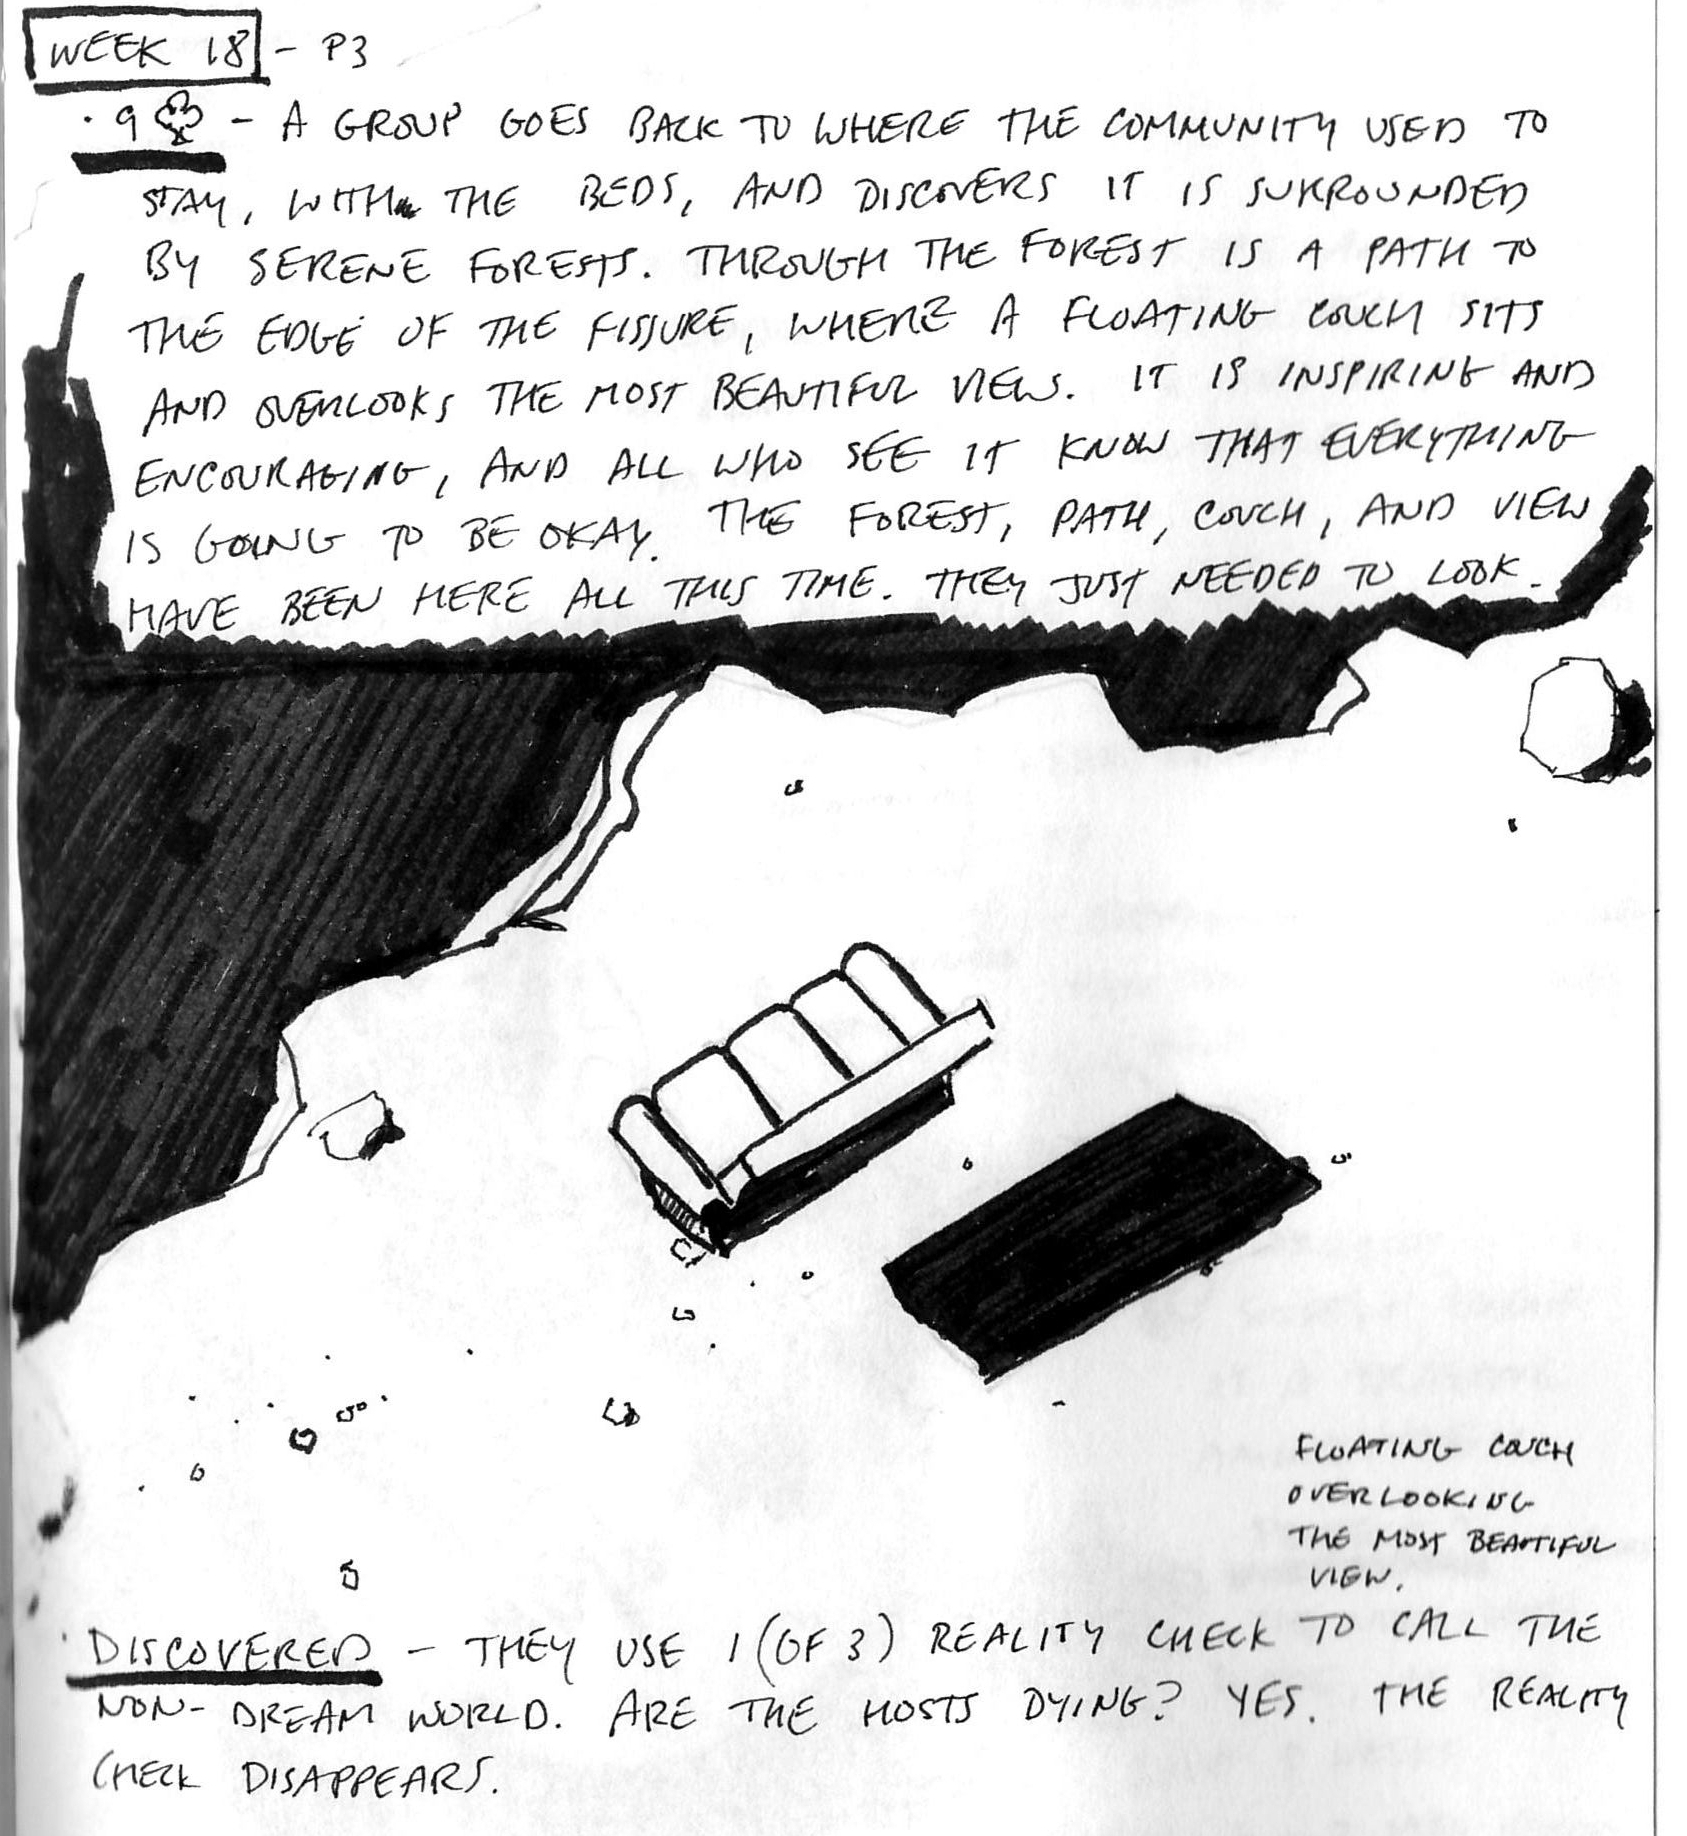 WEEK 18 - P3
· 9 ♣ - A GROUP GOES BACK TO WHERE THE COMMUNITY USED TO
STAY, WITH THE BEDS, AND DISCOVERS IT IS SURROUNDED
BY SERENE FORESTS. THROUGH THE FOREST IS A PATH TO
THE EDGE OF THE FISSURE, WHERE A FLOATING COUCH SITS
AND OVERLOOKS THE MOST BEAUTIFUL VIEW. IT IS INSPIRING AND
ENCOURAGING, AND ALL WHO SEE IT KNOW THAT EVERYTHING
IS GOING TO BE OKAY. THE FOREST, PATH, COUCH, AND VIEW
HAVE BEEN HERE ALL THIS TIME. THEY JUST NEEDED TO LOOK.
FLOATING COUCH
OVERLOOKING
THE MOST BEAUTIFUL
VIEW.
· DISCOVERED - THEY USE 1 (OF 3) REALITY CHECK TO CALL THE
NON-DREAM WORLD. ARE THE HOSTS DYING? YES. THE REALITY
CHECK DISAPPEARS.